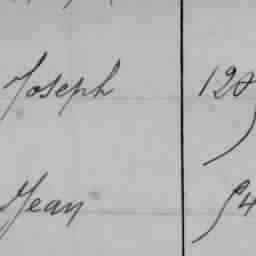 Joseph 120
Jean 54